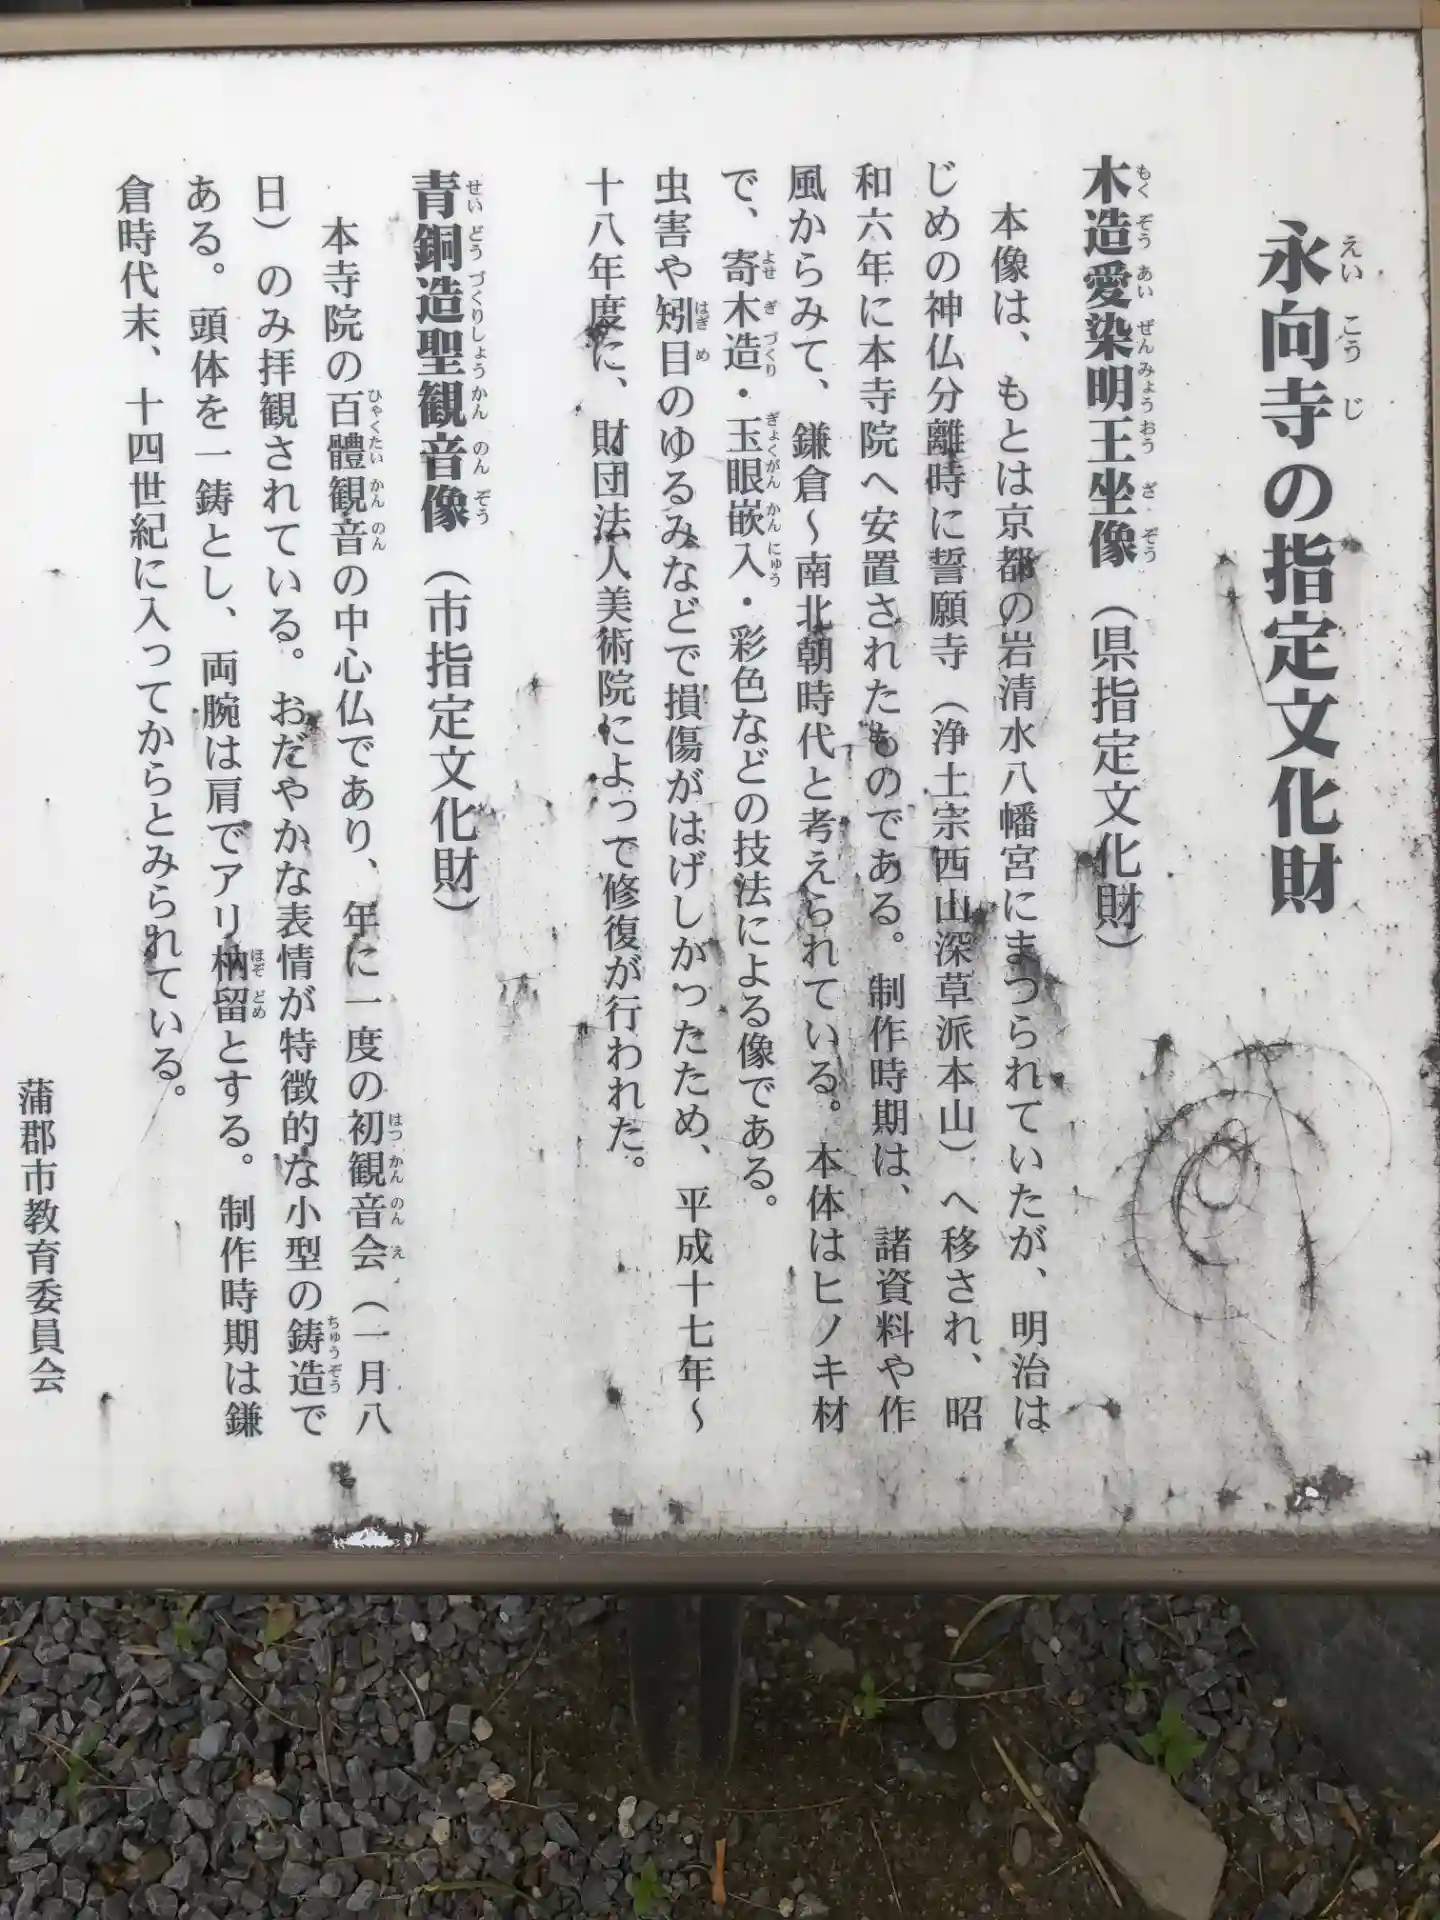 永向寺の指定文化財
木造愛染明王坐像（県指定文化財）
本像は、もとは京都の岩清水八幡宮にまつられていたが、明治は
じめの神仏分離時に誓願寺（浄土宗西山深草派本山）へ移され、昭
和六年に本寺院へ安置されたものである。制作時期は、諸資料や作
風からみて、鎌倉～南北朝時代と考えられている。本体はヒノキ材
で、寄木造・玉眼嵌入・彩色などの技法による像である。
虫害や矧目のゆるみなどで損傷がはげしかったため、平成十七年～
十八年度に、財団法人美術院によって修復が行われた。
青銅造聖観音像（市指定文化財）
本寺院の百體観音の中心仏であり、年に一度の初観音会（一月八
日）のみ拝観されている。おだやかな表情が特徴的な小型の鋳造で
ある。頭体を一鋳とし、両腕は肩でアリ枘留とする。制作時期は鎌
倉時代末、十四世紀に入ってからとみられている。
蒲郡市教育委員会